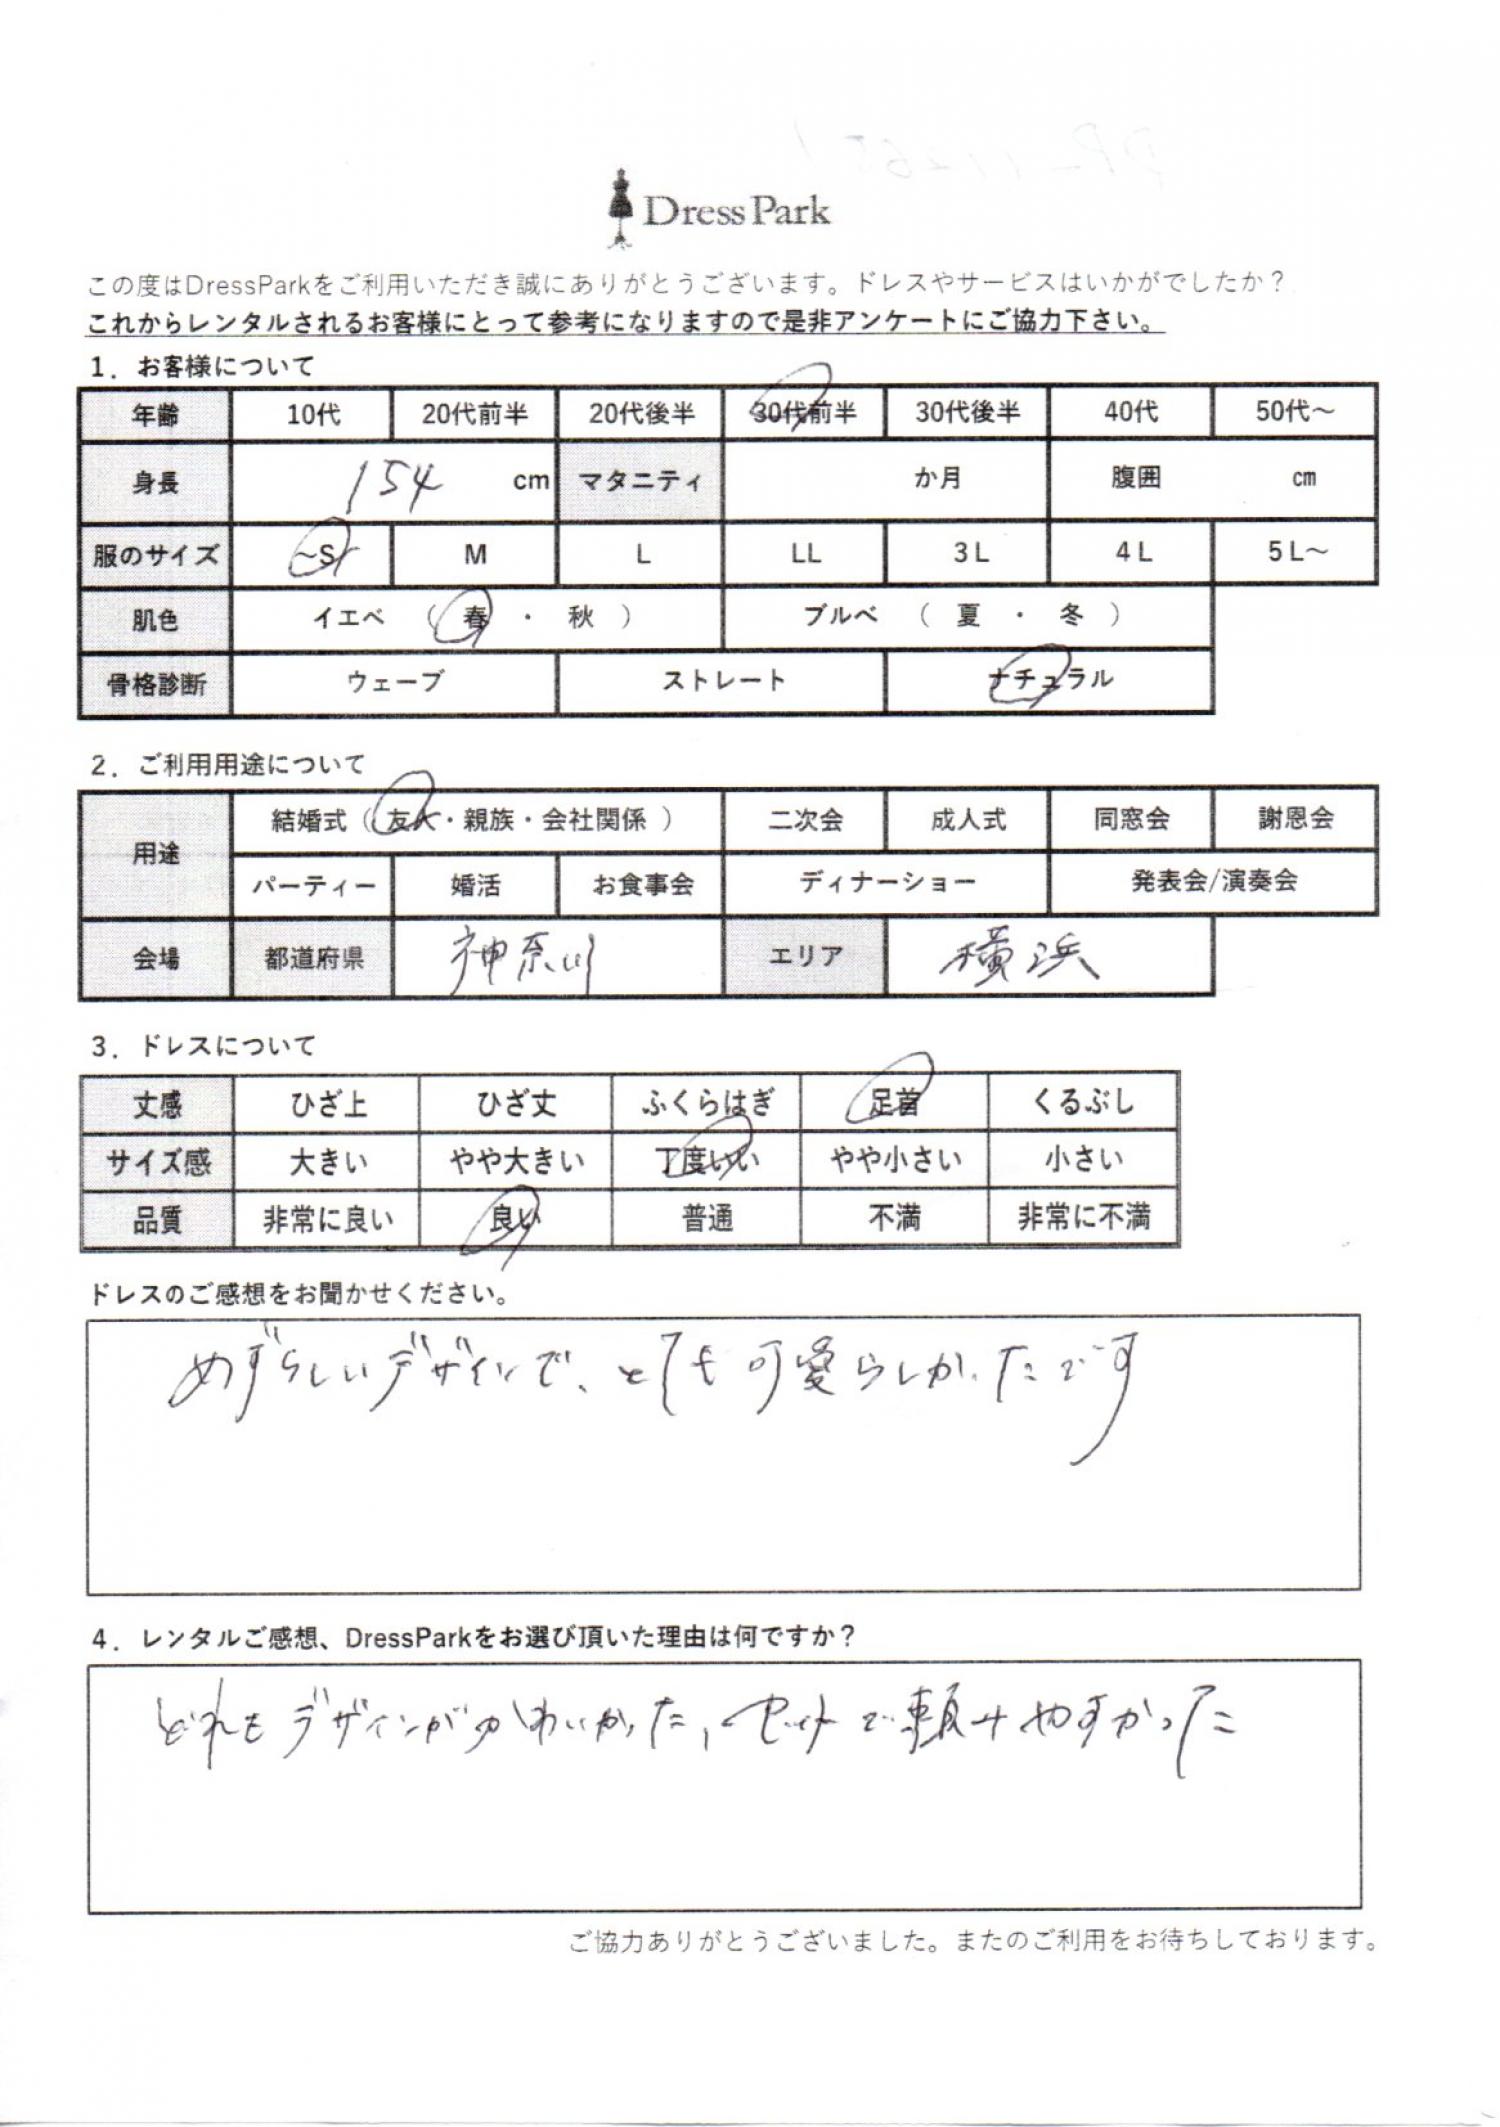 Dress Park
この度はDressParkをご利用いただき誠にありがとうございます。ドレスやサービスはいかがでしたか？
これからレンタルされるお客様にとって参考になりますので是非アンケートにご協力下さい。
1．お客様について
年齢 10代 20代前半 20代後半 30代前半 30代後半 40代 50代～
身長 154 cm マタニティ か月 腹囲 cm
服のサイズ ～S M L LL 3L 4L 5L～
肌色 イエベ （ 春 ・ 秋 ） ブルベ （ 夏 ・ 冬 ）
骨格診断 ウェーブ ストレート ナチュラル
2．ご利用用途について
用途 結婚式（ 友人・親族・会社関係 ） 二次会 成人式 同窓会 謝恩会
パーティー 婚活 お食事会 ディナーショー 発表会/演奏会
会場 都道府県 神奈川 エリア 横浜
3．ドレスについて
丈感 ひざ上 ひざ丈 ふくらはぎ 足首 くるぶし
サイズ感 大きい やや大きい 丁度いい やや小さい 小さい
品質 非常に良い 良い 普通 不満 非常に不満
ドレスのご感想をお聞かせください。
めずらしいデザインで、とても可愛らしかったです
4．レンタルご感想、DressParkをお選び頂いた理由は何ですか？
どれもデザインがかわいかった，セットで頼みやすかった
ご協力ありがとうございました。またのご利用をお待ちしております。